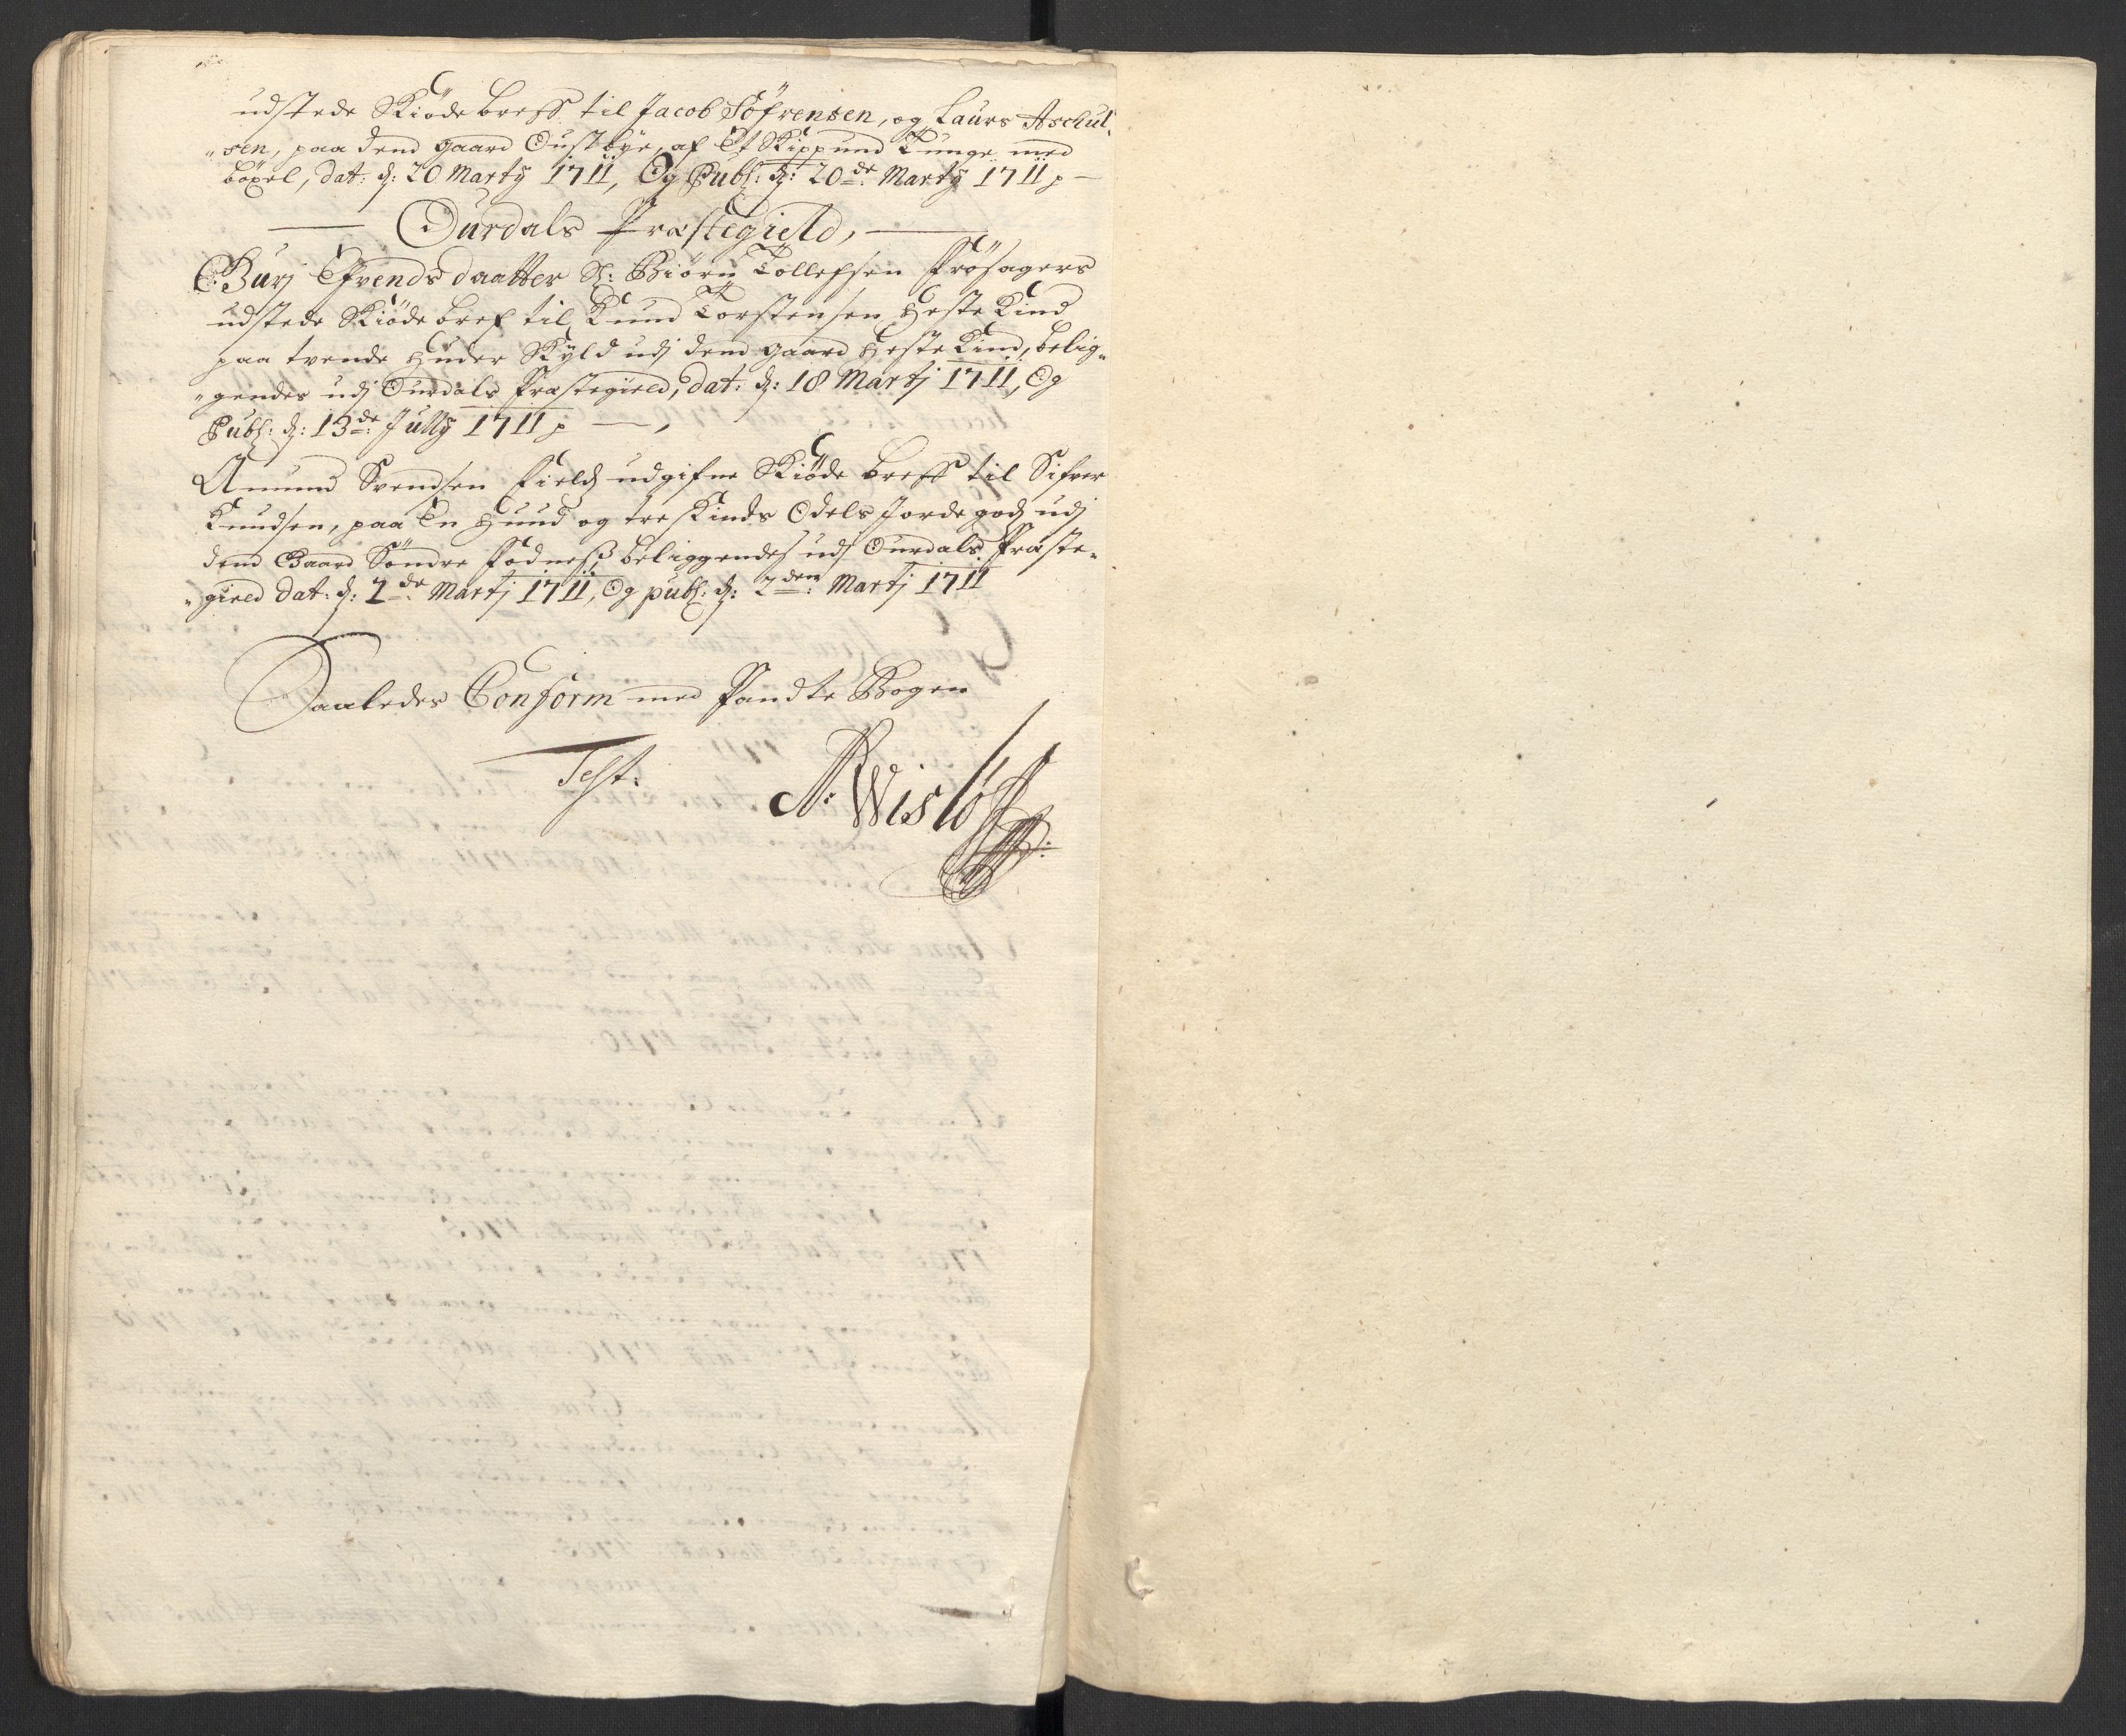 udstede Skiöde breff til Jacob Söfrensen, og Laurs Aschul„
„sen, paa dend gaard Oustbye, af Et Skippund Tunge med
böxel, dat: d: 20 Marty 1711, Og Publ: d: 20de Marty 1711
Ourdals Præstegield,
Gurj Efvendsdaatter Sl: Biörn Tollefsen Frösagers
udstede Skiöde bref til Knud Torstensen Heste Kind
paa tvende Huder Skyld udj dend gaard Heste Kind, belig„
„gendes udj Ourdals Præstegield, dat: d: 18 Martj 1711, Og
Publ: d: 13de Jully 1711
Amund Svendsen Field udgifne Skiöde breff til Sifver
Knudsen, paa En Huud og tre skinds Odels Jordegods udj
dend Gaard Söndre Fodness, beliggendes udj Ourdals Præste„
„gield dat: d: 2de Martj 1711, Og publ: d: 2den Martj 1711
Saaledes Conform med Pandte Bogen
Test:
A: RWislöff